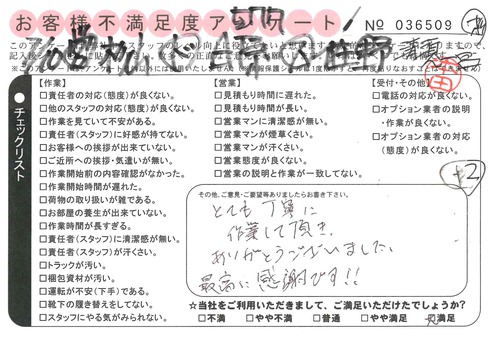 お客様不満足度アンケート
No 036509
チェックリスト
【作業】
□責任者の対応(態度)が良くない。
□他のスタッフの対応(態度)が良くない。
□作業を見ていて不安がある。
□責任者(スタッフ)に好感が持てない。
□お客様への挨拶が出来ていない。
□ご近所への挨拶・気遣いが無い。
□作業開始前の内容確認がなかった。
□作業開始時間が遅れた。
□荷物の取り扱いが雑である。
□お部屋の養生が出来ていない。
□作業時間が長すぎる。
□責任者(スタッフ)に清潔感が無い。
□責任者(スタッフ)が汗くさい。
□トラックが汚い。
□梱包資材が汚い。
□運転が不安(下手)である。
□靴下の履き替えをしてない。
□スタッフにやる気がみられない。
【営業】
□見積もり時間に遅れた。
□見積もり時間が長い。
□営業マンに清潔感が無い。
□営業マンが煙草くさい。
□営業マンが汗くさい。
□営業態度が良くない。
□営業の説明と作業が一致してない。
【受付・その他】
□電話の対応が良くない。
□オプション業者の説明
・作業が良くない。
□オプション業者の対応
(態度)が良くない。
その他、ご意見・ご要望等ありましたらお書き下さい。
とても丁寧に
作業して頂き、
ありがとうございました。
最高に感謝です!!
☆当社をご利用いただきまして、ご満足いただけたでしょうか?
□不満 □やや不満 □普通 □やや満足 満足